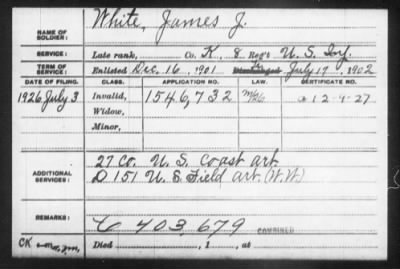 NAME OF SOLDIER: White, James J.
SERVICE: Late rank, Co. K, 8 Reg't U. S. Inf.
TERM OF SERVICE: Enlisted Dec. 16, 1901 July 17, 1902
DATE OF FILING. CLASS. APPLICATION NO. LAW. CERTIFICATE NO.
1926 July 3 Invalid, 1546,732 12-9-27
Widow,
Minor,
ADDITIONAL SERVICES: 27 Co. U. S. Coast art.
D 151 U. S. Field art. (W.W.)
REMARKS: C 403,679 COMBINED
CK Died , 1 , at